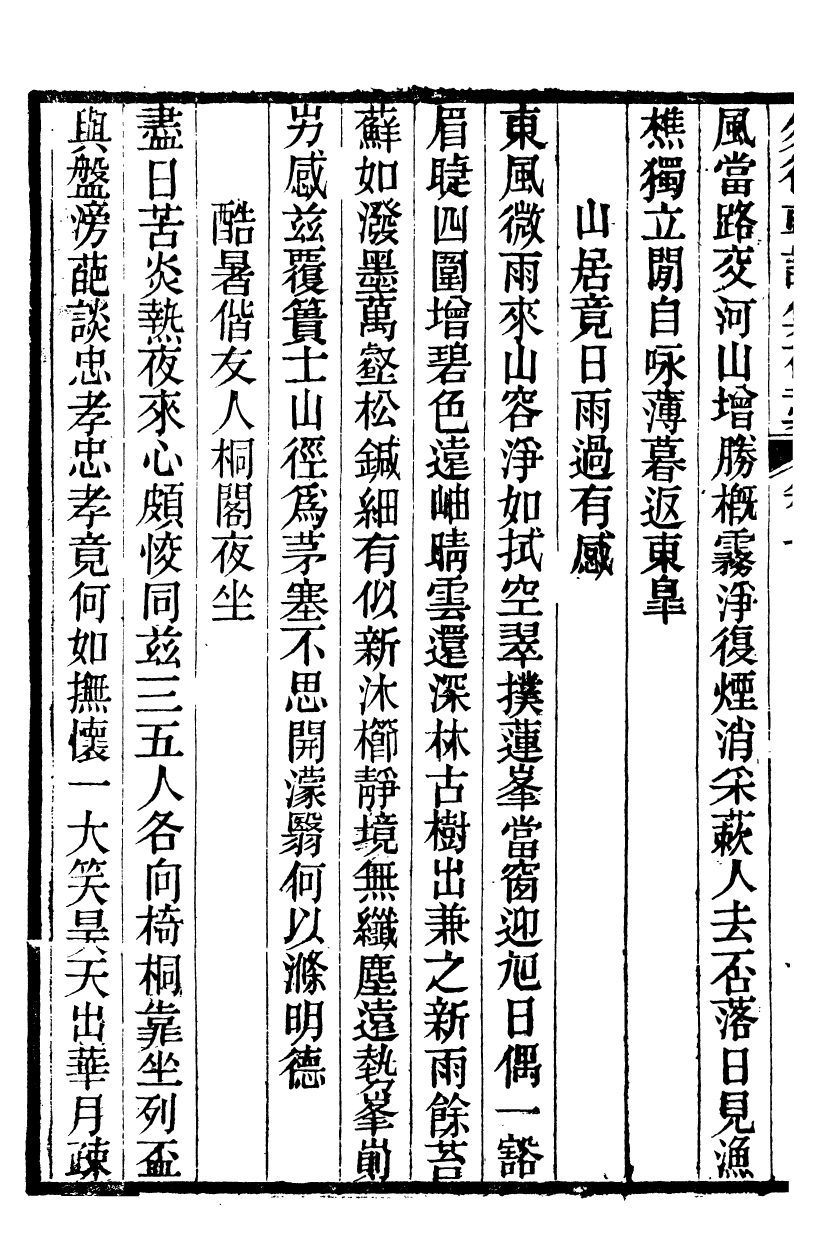 風當路交河山增勝槪霧淨復煙消采蕨人去否落日見漁
樵獨立閒自咏薄暮返東皐
山居竟日雨過有感
東風微雨來山容淨如拭空翠撲蓮峯當窗迎旭日偶一豁
眉睫四圍增碧色遠岫晴雲還深林古樹出兼之新雨餘苔
蘚如潑墨萬壑松鍼細有似新沐櫛靜境無纖塵遠埶峯崱
屴感茲覆簣士山徑爲茅塞不思開濛翳何以滌明德
酷暑偕友人桐閣夜坐
盡日苦炎熱夜來心頗悛同茲三五人各向椅桐靠坐列盃
與盤滂葩談忠孝忠孝竟何如撫懷一大笑昊天出華月疎